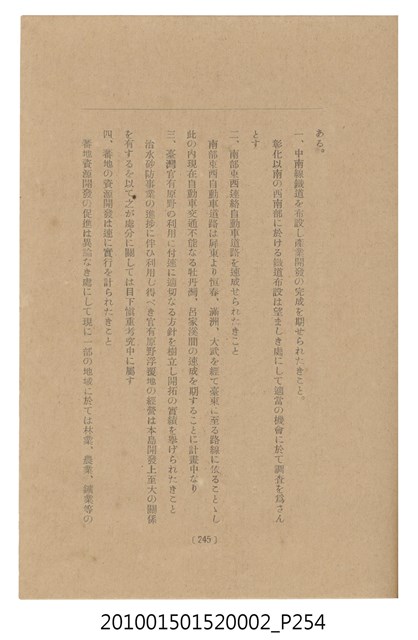 ある。
一、中南線鐵道を布設し產業開發の完成を期せられたきこと。
彰化以南の西南部に於ける鐵道布設は望ましき處にして適當の機會に於て調査を爲さん
とす
二、南部東西連絡自動車道路を速成せられたきこと
南部東西自動車道路は屏東より恒春、滿洲、大武を經て臺東に至る路線に依ることとし
此の内現在自動車交通不能なる牡丹灣、呂家溪間の速成を期することに計畫中なり
三、臺灣官有原野の利用に付速に適切なる方針を樹立し開拓の實績を擧げられたきこと
治水砂防事業の進捗に伴ひ利用し得べき官有原野浮復地の經營は本島開發上至大の關係
を有するを以て之が處分に關しては目下愼重考究中に屬す
四、蕃地の資源開發は速に實行を計られたきこと
蕃地資源開發の促進は異論なき處にして現に一部の地域に於ては林業、農業、鑛業等の
(245)
201001501520002_P254